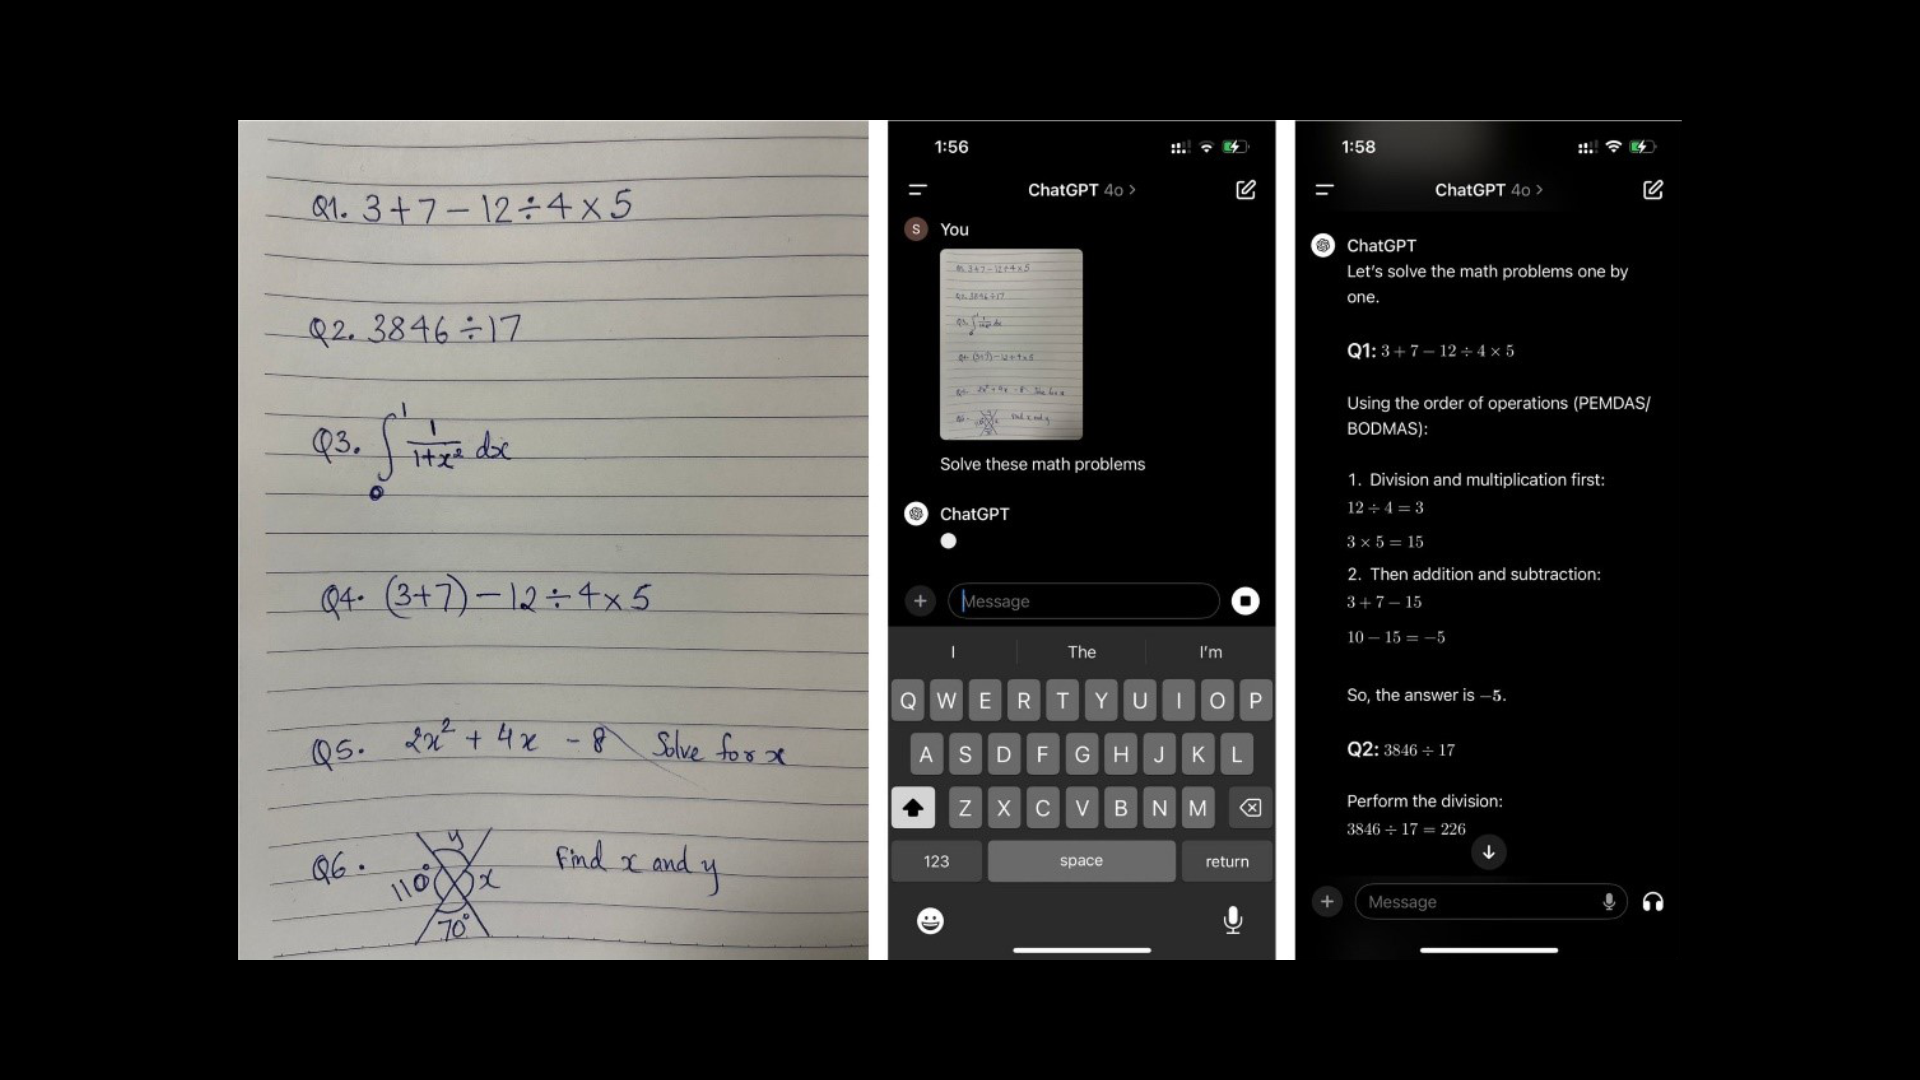 Q1. 3+7-12÷4×5
Q2. 3846÷17
Q3. ∫₀¹ 1/(1+x²) dx
Q4. (3+7)-12÷4×5
Q5. 2x²+4x-8 Solve for x
Q6. y 110° x 70° Find x and y
1:56
ChatGPT 4o >
S You
Solve these math problems
ChatGPT
Message
I The I'm
Q W E R T Y U I O P
A S D F G H J K L
Z X C V B N M
123 space return
1:58
ChatGPT 4o >
ChatGPT
Let's solve the math problems one by
one.
Q1: 3 + 7 − 12 ÷ 4 × 5
Using the order of operations (PEMDAS/
BODMAS):
1. Division and multiplication first:
12 ÷ 4 = 3
3 × 5 = 15
2. Then addition and subtraction:
3 + 7 − 15
10 − 15 = −5
So, the answer is −5.
Q2: 3846 ÷ 17
Perform the division:
3846 ÷ 17 = 226
Message